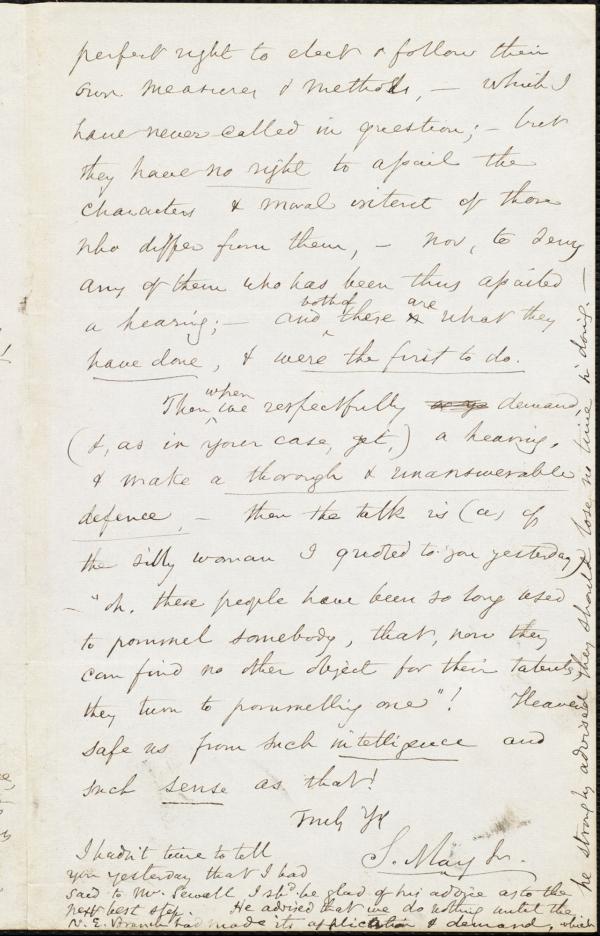 perfect right to elect & follow their
own measures & methods, — which I
have never called in question; — but
they have no right to assail the
characters & moral interest of those
who differ from them, — nor, to deny
any of them who has been thus assailed
a hearing; — and both of these are what they
have done, & were the first to do.
Then, when we respectfully demand
(&, as in your case, get,) a hearing,
& make a thorough & unanswerable
defence, — then the talk is (as of
the silly woman I quoted to you yesterday)
— "oh, these people have been so long used
to pommel somebody, that, now they
can find no other object for their talents,
they turn to pommelling one"! Heaven
safe us from such intelligence and
such sense as that!
Truly Yrs
S. May Jr.
I hadn't time to tell
you yesterday that I had
said to Mr. Sewall I shd. be glad of his advice as to the
next best step. He advised that we do nothing until the
N. E. Branch had made its application & demand, which
he strongly advised they should lose no time in doing. —